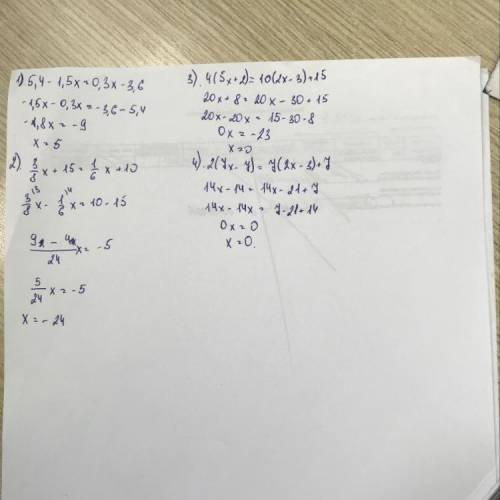 1) 5,4 - 1,5x = 0,3x - 3,6
-1,5x - 0,3x = -3,6 - 5,4
-1,8x = -9
x = 5
2) 3/8 x + 15 = 1/6 x + 10
3/8 ^13 x - 1/6 ^14 x = 10 - 15
9x - 4x/24 x = -5
5/24 x = -5
x = -24
3) 4(5x+2) = 10(2x-3)+15
20x + 8 = 20x - 30 + 15
20x - 20x = 15 - 30 - 8
0x = -23
x = 0
4) 2(7x - 7) = 7(2x-3)+7
14x - 14 = 14x - 21 + 7
14x - 14x = 7 - 21 + 14
0x = 0
x = 0.